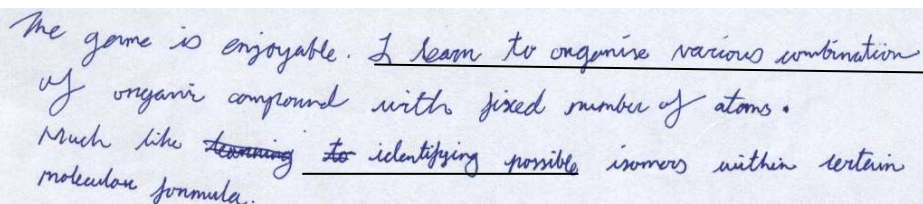 The game is enjoyable. I learn to organise various combination
of organic compound with fixed number of atoms.
Much like learning to identifying possible isomers within certain
molecular formula.